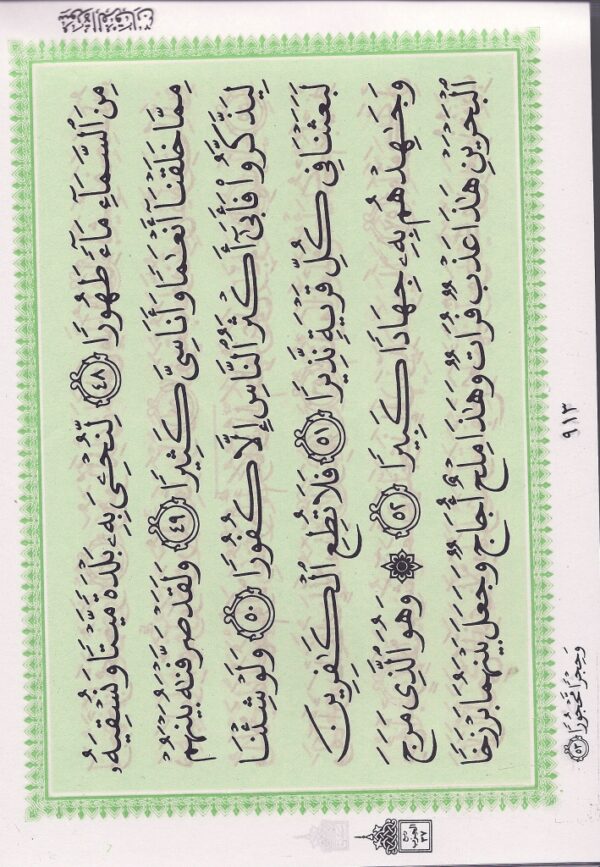 مِنَ ٱلسَّمَآءِ مَآءً طَهُورًا ٤٨ لِّنُحْـِۧىَ بِهِۦ بَلْدَةً مَّيْتًا وَنُسْقِيَهُۥ
مِمَّا خَلَقْنَآ أَنْعَٰمًا وَأَنَاسِىَّ كَثِيرًا ٤٩ وَلَقَدْ صَرَّفْنَٰهُ بَيْنَهُمْ
لِيَذَّكَّرُوا۟ فَأَبَىٰٓ أَكْثَرُ ٱلنَّاسِ إِلَّا كُفُورًا ٥٠ وَلَوْ شِئْنَا
لَبَعَثْنَا فِى كُلِّ قَرْيَةٍ نَّذِيرًا ٥١ فَلَا تُطِعِ ٱلْكَٰفِرِينَ
وَجَٰهِدْهُم بِهِۦ جِهَادًا كَبِيرًا ٥٢ ۞ وَهُوَ ٱلَّذِى مَرَجَ
ٱلْبَحْرَيْنِ هَٰذَا عَذْبٌ فُرَاتٌ وَهَٰذَا مِلْحٌ أُجَاجٌ وَجَعَلَ بَيْنَهُمَا بَرْزَخًا
وَحِجْرًا مَّحْجُورًا ٥٣
ربع
الحزب
٣٧
٩١٣